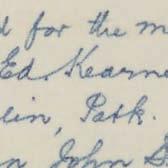 d for the m
Ed. Kearne
lin, Patk.
n John S